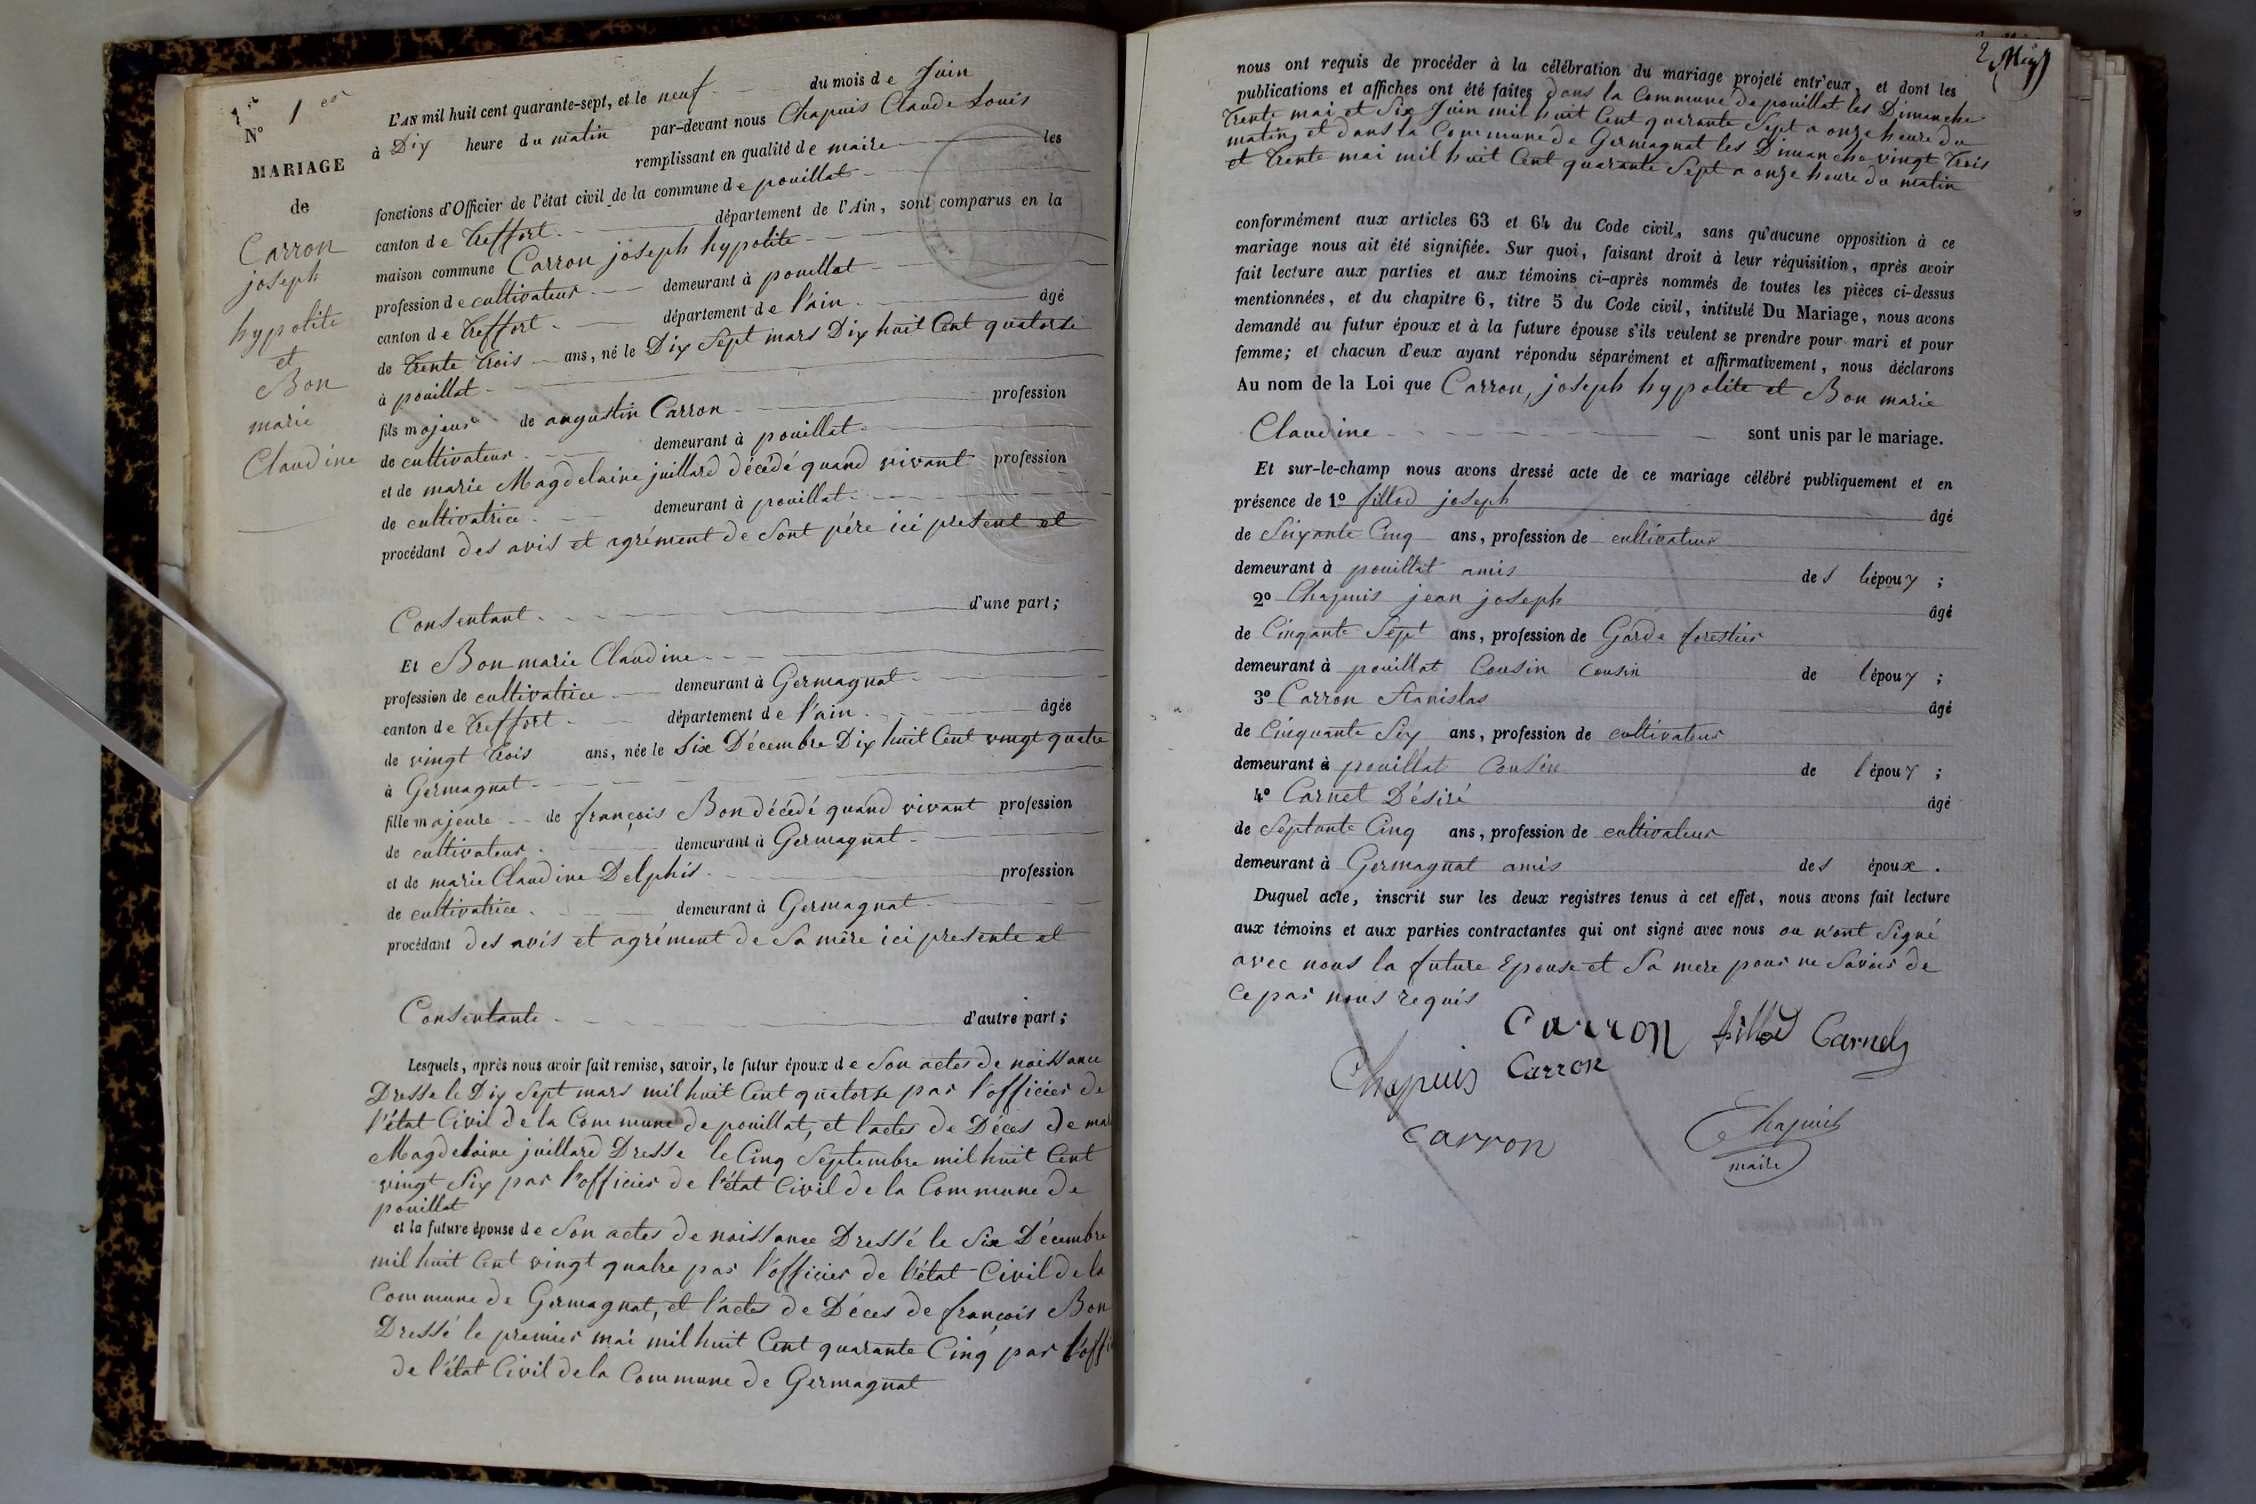 N° 1er
MARIAGE
de
Carron
joseph
hypolite
et
Bon
marie
Claudine
L'AN mil huit cent quarante-sept, et le neuf du mois de Juin
à Dix heure du matin par-devant nous Chapuis Claude Louis
remplissant en qualité de maire les
fonctions d'Officier de l'état civil de la commune de pouillat
canton de treffort département de l'Ain, sont comparus en la
maison commune Carron joseph hypolite
profession de cultivateur demeurant à pouillat
canton de treffort département de l'ain âgé
de trente trois ans, né le Dix Sept mars Dix huit Cent quatorse
à pouillat
fils majeur de augustin Carron profession
de cultivateur demeurant à pouillat
et de marie Magdelaine juillard décédé quand vivant profession
de cultivatrice demeurant à pouillat
procédant des avis et agrément de Sont pére ici present et
Consentant d'une part;
Et Bon marie Claudine
profession de cultivatrice demeurant à Germagnat
canton de treffort département de l'ain âgée
de vingt trois ans, née le Six Décembre Dix huit Cent vingt quatre
à Germagnat
fille majeure de françois Bon décédé quand vivant profession
de cultivateur demeurant à Germagnat
et de marie Claudine Delphis profession
de cultivatrice demeurant à Germagnat
procédant des avis et agrément de Sa mère ici presente et
Consentante d'autre part;
Lesquels, après nous avoir fait remise, savoir, le futur époux de Son actes de naissance
Dresse le Dix Sept mars mil huit Cent quatorse par l'officier de
l'état Civil de la Commune de pouillat, et l'actes de Déces de
Magdelaine juillard Dresse le Cinq Septembre mil huit Cent
vingt Six par l'officier de l'état Civil de la Commune de
pouillat
et la future épouse de Son actes de naissance Dressé le Six Décembre
mil huit Cent vingt quatre par l'officier de l'état Civil de la
Commune de Germagnat, et l'actes de Déces de françois Bon
Dressé le premier mai mil huit Cent quarante Cinq par l'offi
de l'état Civil de la Commune de Germagnat
2
nous ont requis de procéder à la célébration du mariage projeté entr'eux, et dont les
publications et affiches ont été faites dans la Commune de pouillat les Dimanche
trente mai et Six Juin mil huit Cent quarante Sept a onze heure du
matin, et dans la Commune de Germagnat les Dimanche vingt trois
et trente mai mil huit Cent quarante Sept a onze heure du matin
conformément aux articles 63 et 64 du Code civil, sans qu'aucune opposition à ce
mariage nous ait été signifiée. Sur quoi, faisant droit à leur réquisition, après avoir
fait lecture aux parties et aux témoins ci-après nommés de toutes les pièces ci-dessus
mentionnées, et du chapitre 6, titre 5 du Code civil, intitulé Du Mariage, nous avons
demandé au futur époux et à la future épouse s'ils veulent se prendre pour mari et pour
femme; et chacun d'eux ayant répondu séparément et affirmativement, nous déclarons
Au nom de la Loi que Carron, joseph hypolite et Bon marie
Claudine sont unis par le mariage.
Et sur-le-champ nous avons dressé acte de ce mariage célébré publiquement et en
présence de 1° fillod joseph âgé
de Soixante Cinq ans, profession de cultivateur
demeurant à pouillat amis des lépoux ;
2° Chapuis jean joseph âgé
de Cinqante Sept ans, profession de Garde forestier
demeurant à pouillat Cousin cousin de lépoux ;
3° Carron Stanislas âgé
de Cinquante Six ans, profession de cultivateur
demeurant à pouillat Cousin de lépoux ;
4° Carnet Désiré âgé
de Septante Cinq ans, profession de cultivateur
demeurant à Germagnat amis des époux.
Duquel acte, inscrit sur les deux registres tenus à cet effet, nous avons fait lecture
aux témoins et aux parties contractantes qui ont signé avec nous ou n'ont Signé
avec nous la future Epouse et Sa mere pour ne Savoir de
ce par nous requis
Carron fillod Carnet
Chapuis Carron
Carron Chapuis
maire